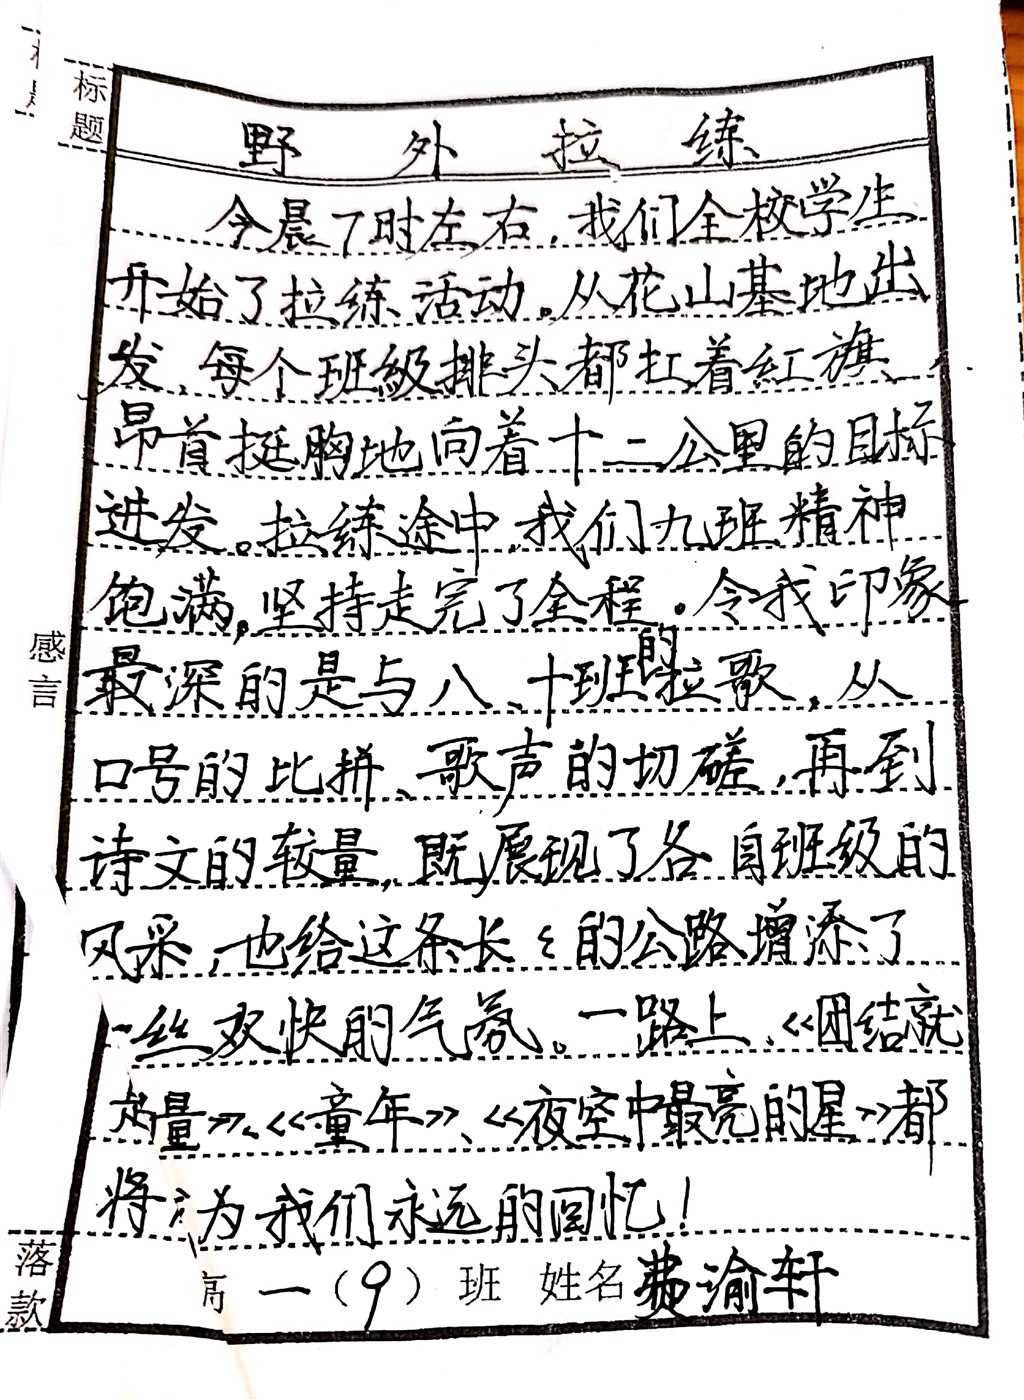 标题
野外拉练
今晨7时左右,我们全校学生
开始了拉练活动。从花山基地出
发,每个班级排头都扛着红旗,
昂首挺胸地向着十二公里的目标
进发。拉练途中,我们九班精神
饱满,坚持走完了全程。令我印象
最深的是与八、十班的拉歌,从
口号的比拼、歌声的切磋,再到
诗文的较量,既展现了各自班级的
风采,也给这条长长的公路增添了
一丝欢快的气氛。一路上,《团结就
是力量》、《童年》、《夜空中最亮的星》都
将成为我们永远的回忆!
感言
落款
高一(9)班 姓名 费渝轩